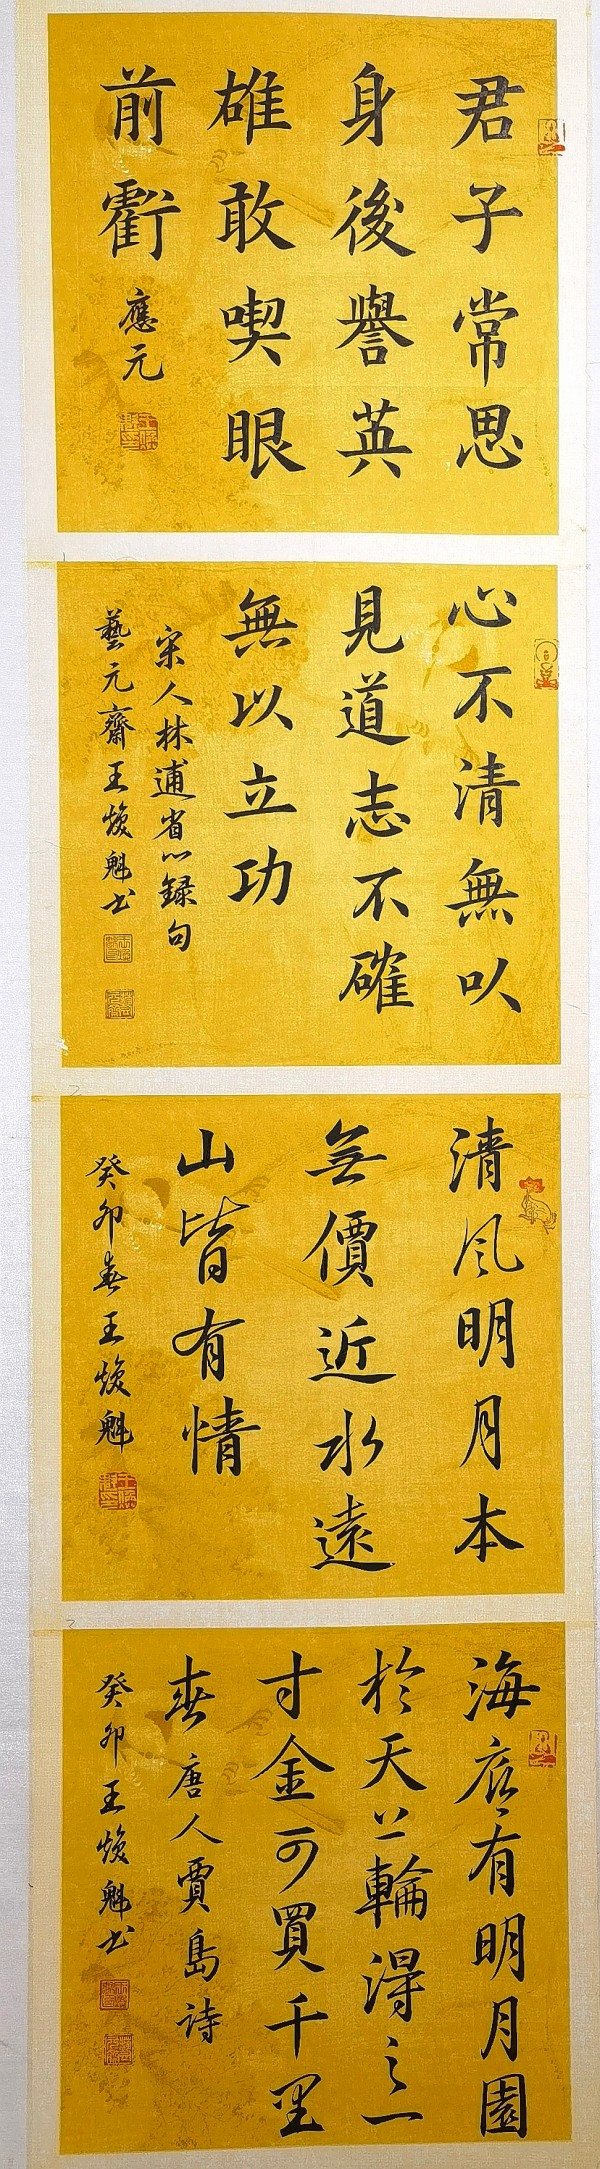 君子常思
身後譽英
雄敢喫眼
前虧
應元
心不清無以
見道志不確
無以立功
宋人林逋省心錄句
藝元齋王煥魁书
清风明月本
無價近水遠
山皆有情
癸卯春王煥魁
海底有明月圓
於天上輪得之一
寸金可買千里
春唐人賈島詩
癸卯王煥魁书